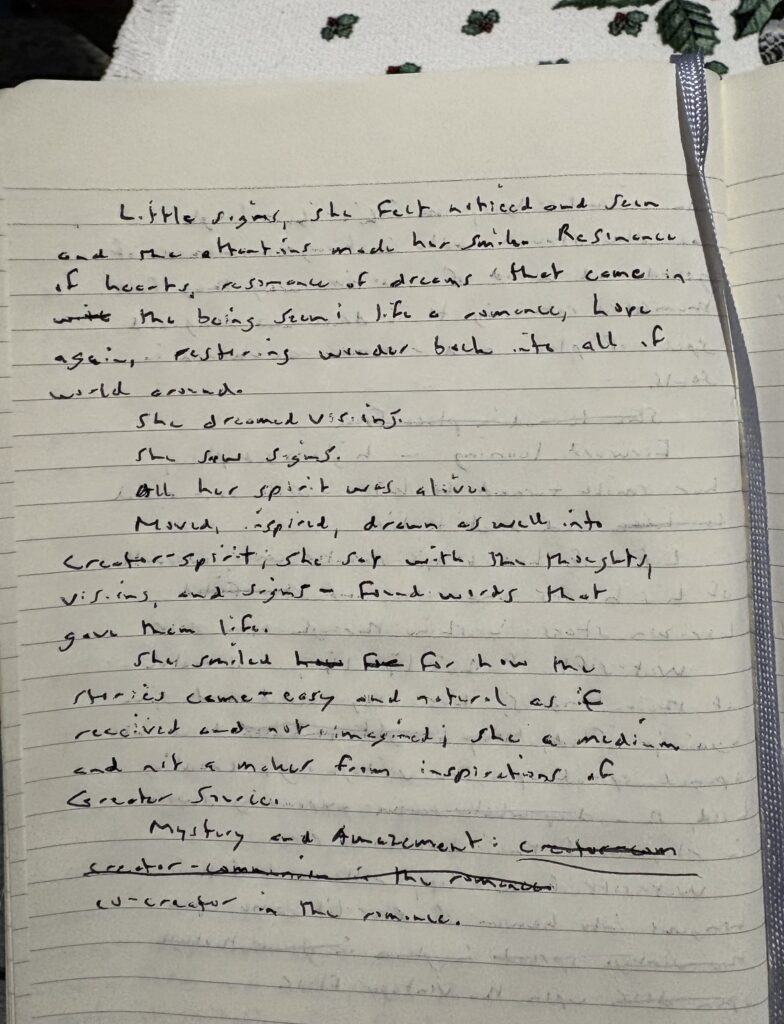 Little signs, she felt noticed and seen
and the attentions made her smile. Resonance
of hearts, resonance of dreams that came in
with the being seen: life a romance, hope
again, restoring wonder back into all of
world around.
She dreamed visions.
She saw signs.
All her spirit was alive.
Moved, inspired, drawn as well into
Creator-spirit; she sat with the thoughts,
visions, and signs - found words that
gave them life.
She smiled how for for how the
stories came - easy and natural as if
received and not imagined; she a medium
and not a maker from inspirations of
Greater Source.
Mystery and Amazement: creator-com
creator-communion in the romance
co-creator in the romance.